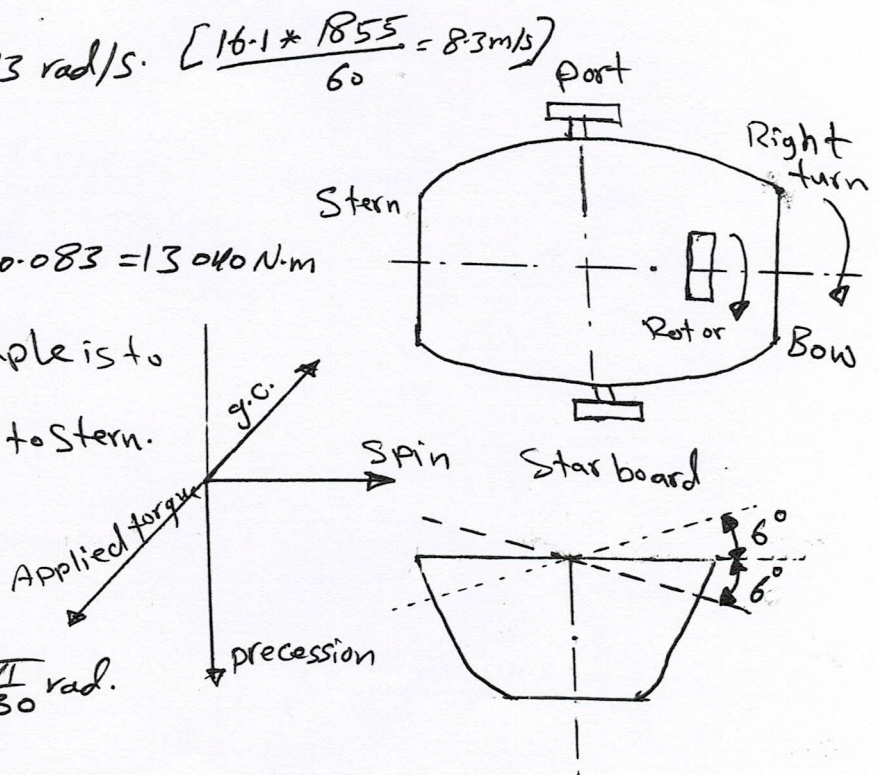 3 rad/s. [16.1 * 1855 / 60 = 8.3m/s]
Port
Right
turn
Stern
0.083 = 13 040 N.m
Rotor
Bow
ple is to
to Stern.
g.c.
Spin
Starboard
Applied torque
6°
6°
precession
π/30 rad.